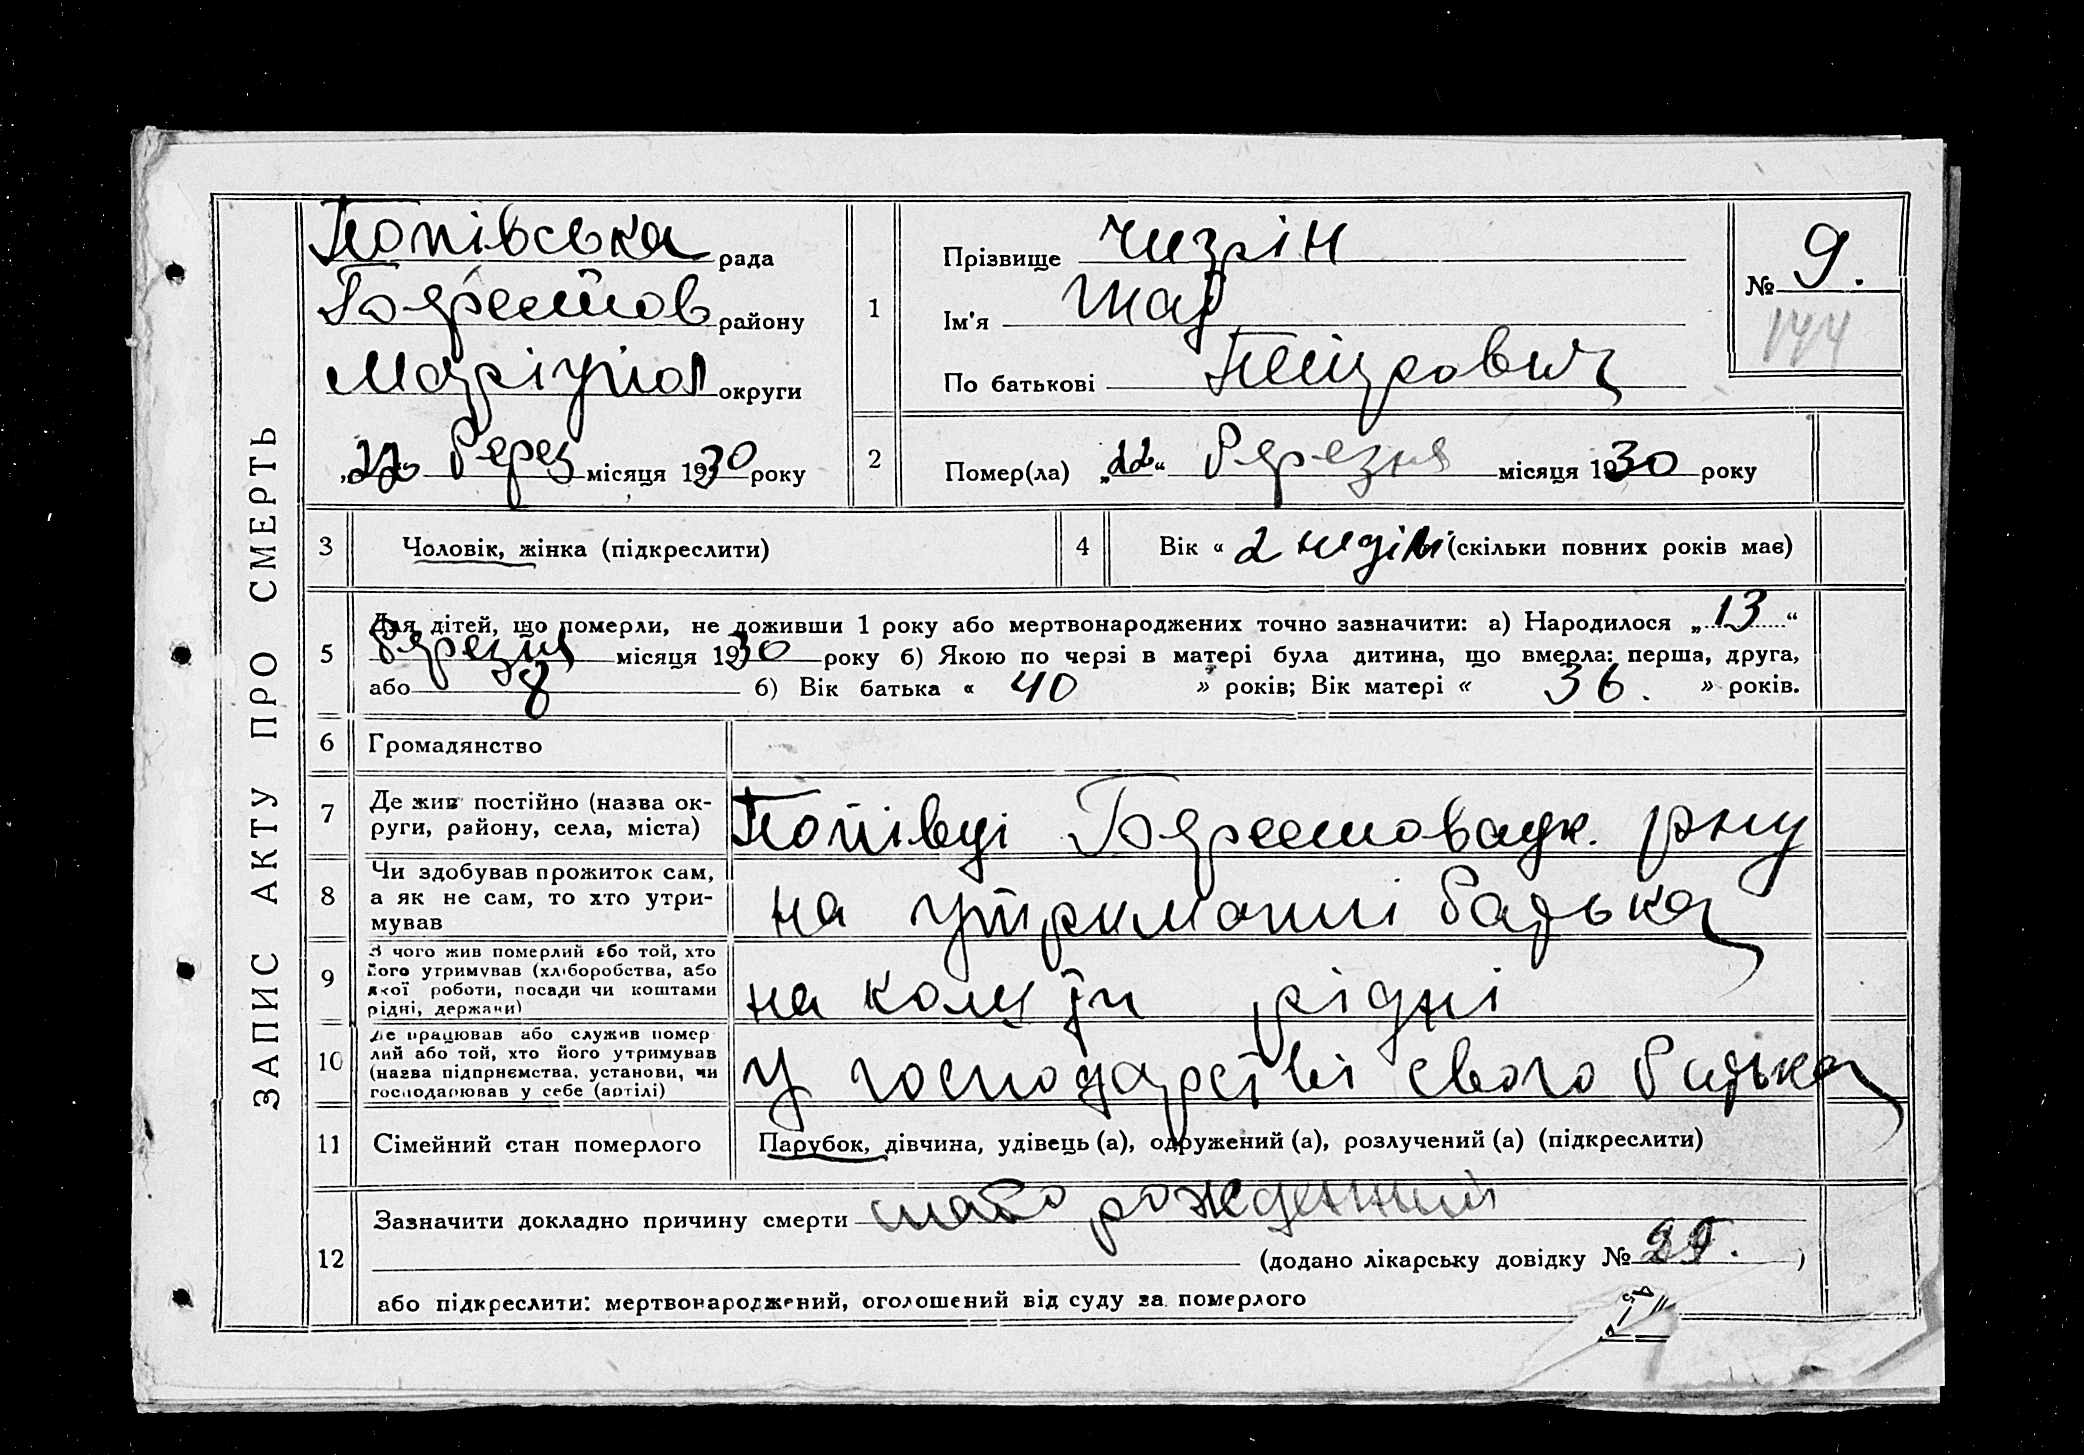 ЗАПИС АКТУ ПРО СМЕРТЬ
Попівська рада
Бярестов району
Маріупол округи
„22“ берез місяця 1930 року
1
Прізвище Чизрін
Ім'я
По батькові Петрович
№ 9.
144
2 Помер(ла) „22“ Бярезня місяця 1930 року
3 Чоловік, жінка (підкреслити)
4 Вік « 2 неділі (скільки повних років має)
5 Для дітей, що померли, не доживши 1 року або мертвонароджених точно зазначити: а) Народилося „13“
Бярезня місяця 1930 року б) Якою по черзі в матері була дитина, що вмерла: перша, друга,
або 8 б) Вік батька « 40 » років; Вік матері « 36. » років.
6 Громадянство
7 Де жив постійно (назва ок-
руги, району, села, міста)
Попівці Бярестовадк. рну
8 Чи здобував прожиток сам,
а як не сам, то хто утри-
мував
на утриманні батька
9 З чого жив померлий або той, хто
його утримував (хліборобства, або
якої роботи, посади чи коштами
рідні, держави)
на кошти рідні
10 Де працював або служив помер
лий або той, хто його утримував
(назва підприємства, установи, чи
господарював у себе (артілі)
у господарстві свого батька
11 Сімейний стан померлого Парубок, дівчина, удівець (а), одружений (а), розлучений (а) (підкреслити)
12 Зазначити докладно причину смерти слабо рожденний
(додано лікарську довідку № 29. )
або підкреслити: мертвонароджений, оголошений від суду за померлого